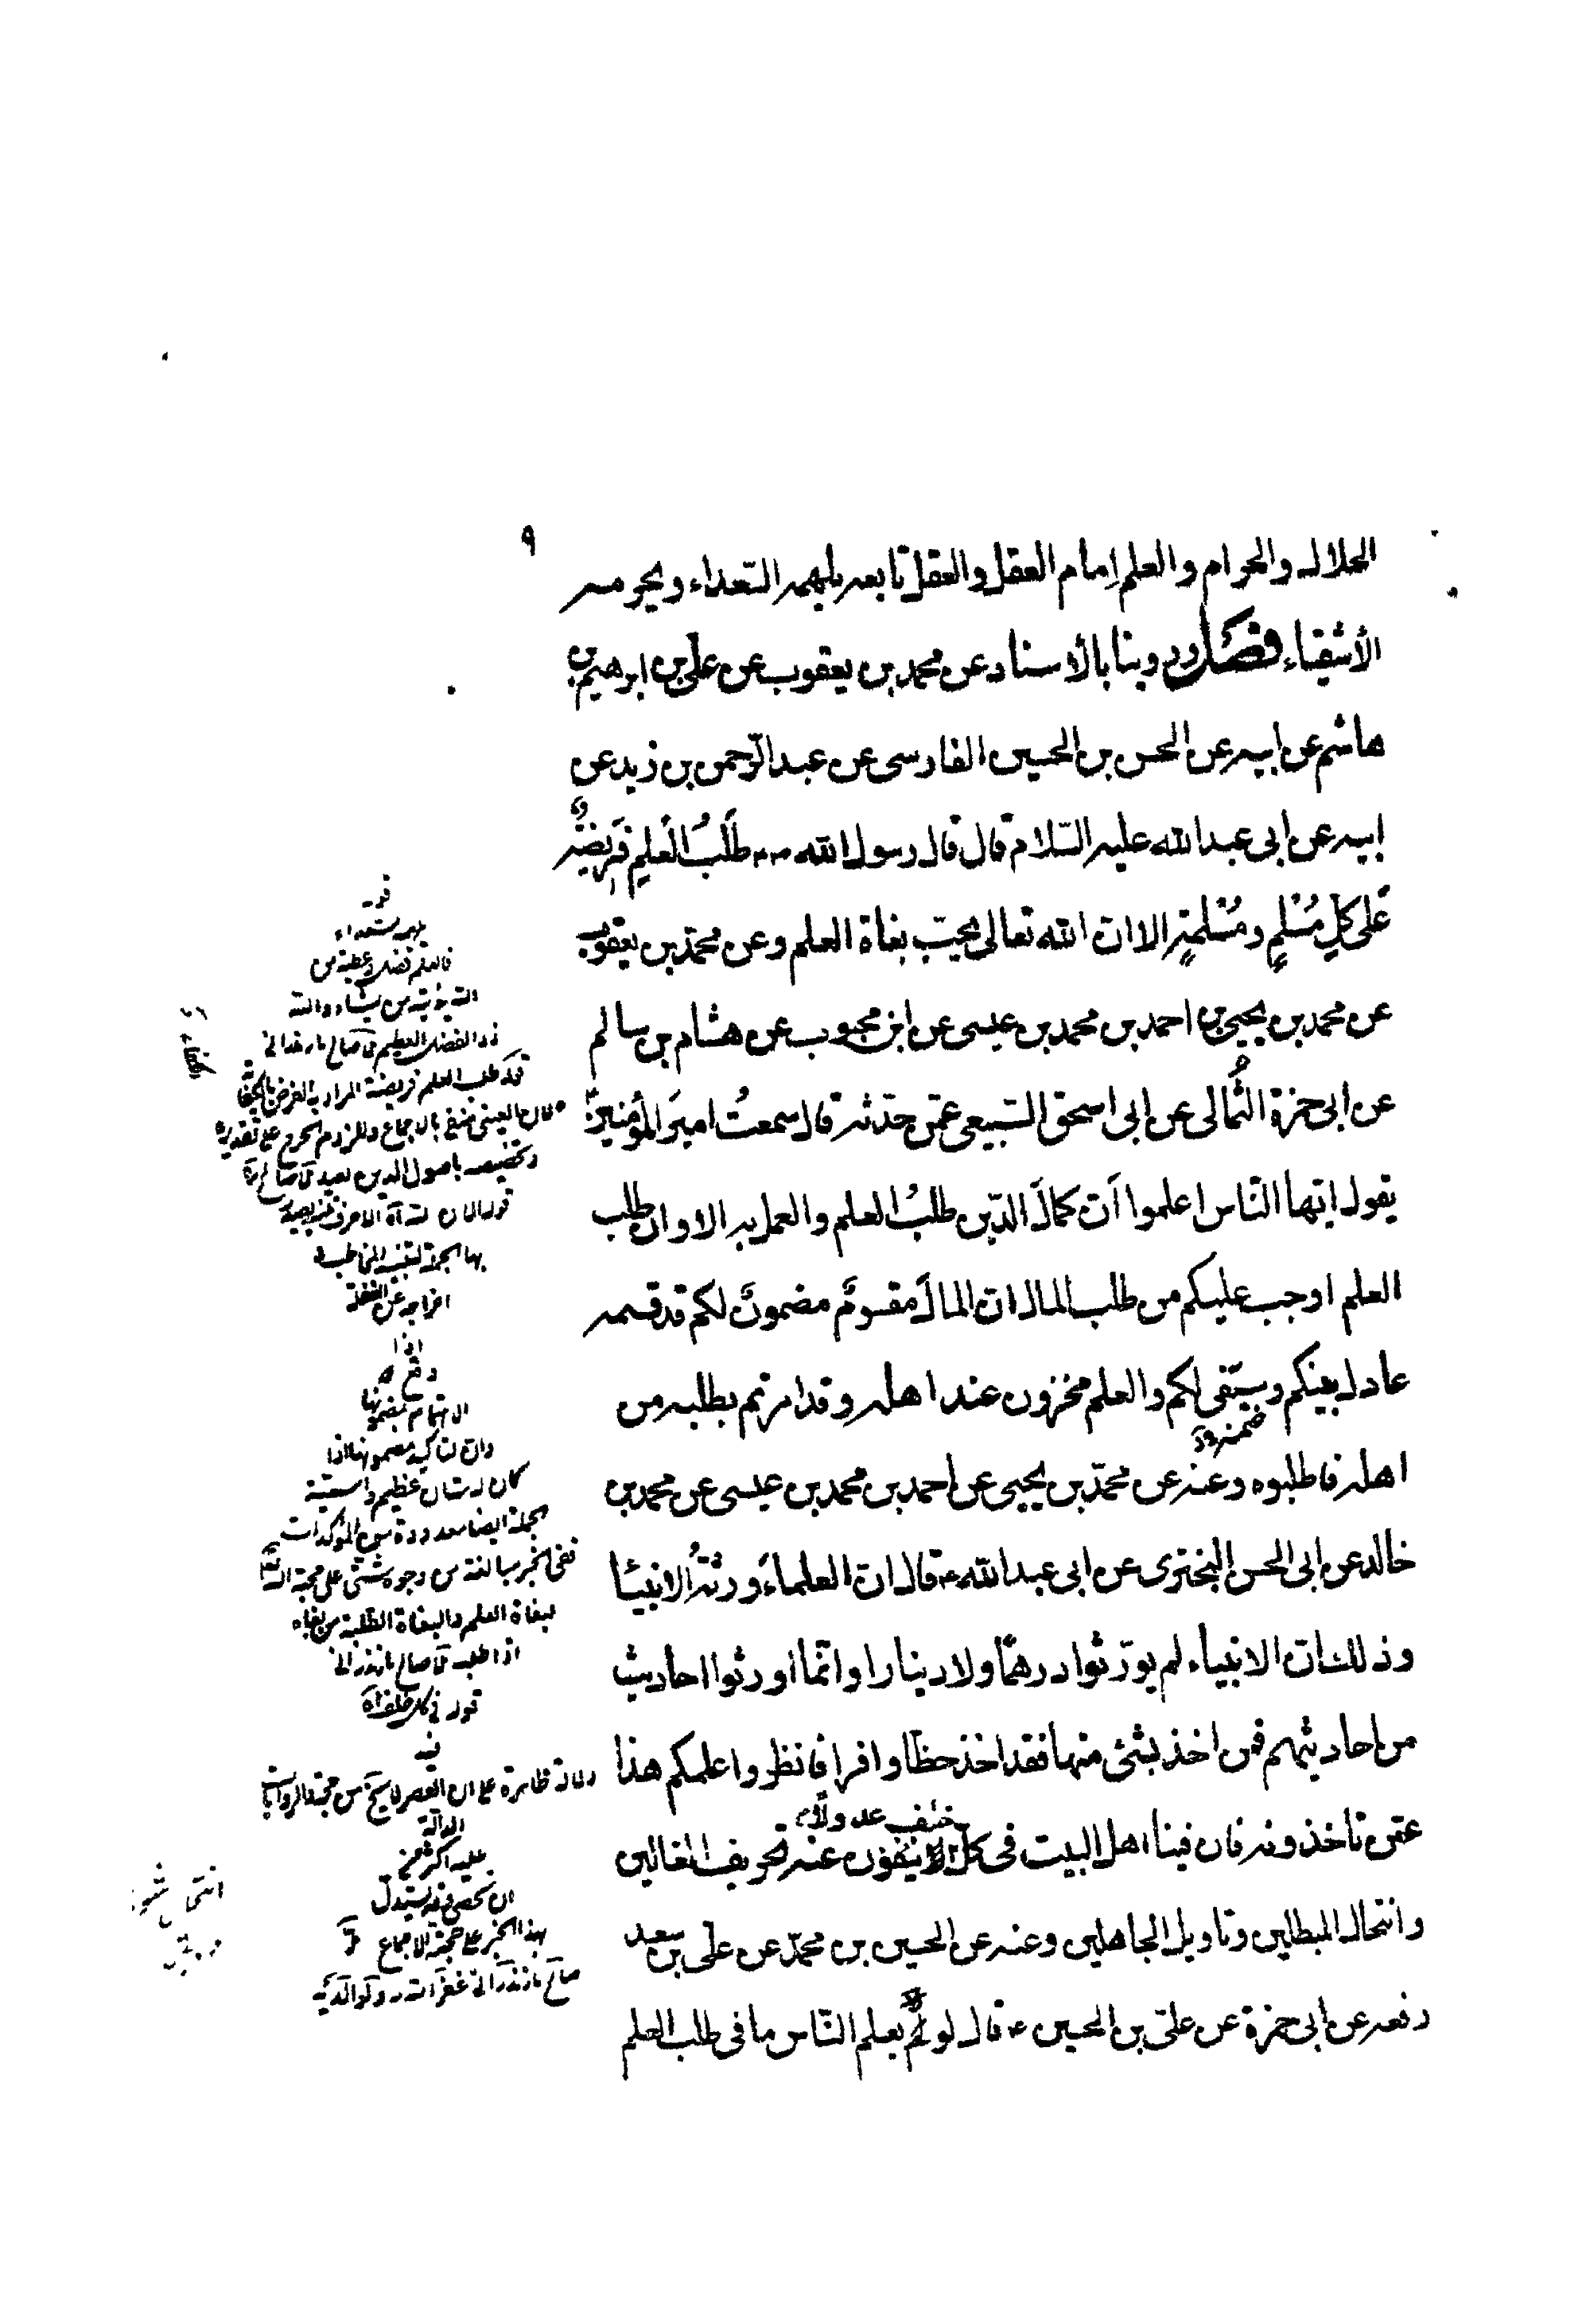 ٩
الحلال والحرام والعلم إمام العقل والعقل تابعه يلهمه السّعداء ويحرمه
الأشقياء فصل وروينا بالأسناد عن محمد بن يعقوب عن علي بن ابرهيم بن
هاشم عن ابيه عن الحسن بن الحسين الفارسي عن عبد الرّحمن بن زيد عن
ابيه عن ابي عبد الله عليه السّلام قال قال رسول الله طَلَبُ العِلمِ فَرِيضَةٌ
عَلى كلِ مُسْلمٍ ومُسْلمةٍ الا ان الله تعالى يحبّ بغاة العلم وعن محمّد بن يعقوب
عن محمد بن يحيى عن احمد بن محمد بن عيسى عن ابن محبوب عن هشام بن سالم
عن ابي حمزة الثُمالى عن ابى اسحق السّبيعى عمّن حدّثه قال سمعتُ اميرَ المؤمنين
يقول ايّها النّاس اعلموا اَنّ كمالَ الدّين طلبُ العلم والعمل به الا وان طلب
العلم اوجب عليكم من طلب المال ان المالَ مقسومٌ مضمونٌ لكم قد قسمه
عادل بينكم وسيَفى لكم والعلم مخزون عند اهله وقد امرتم بطلبه من
ضمنه و
اهله فاطلبوه وعنه عن محمّد بن يحيى عن احمد بن محمد بن عيسى عن محمد بن
خالد عن ابى الحسن البخترى عن ابى عبد الله ع قال ان العلماءَ ورثةُ الانبيا
وذلك ان الانبياء لم يورّثوا درهمًا ولا دينارا وانّما اورثوا احاديث
من احاديثهم فمن اخذ بشئ منها فقد اخذ حظّا وافرا فانظروا علمكم هذا
عمّن تاخذونه فان فينا اهل البيت فى كل خلف عدولا ينفون عنه تحريف الغالين
وانتحال المبطلين وتاويل الجاهلين وعنه عن الحسين بن محمّد عن علي بن سعد
رفعه عن ابى حمزة عن علىّ بن الحسين ع قال لو لم يعلم النّاس ما فى طلب العلم
قوله
يلهمه السعداء
فالعلم فضل وعطية من
الله يؤتيه من يشاء والله
ذو الفضل العظيم
قوله طلب العلم فريضة المراد به الفرض
قوله الا ان الله
بها الجملة لتنبيه المخاطب و
اخراجه عن الغفلة
اذا
وقع
الاهتمام بمضمونها
وان لتاكيد مضمونها اذا
كان له شان عظيم واسمية
الجملة ايضا معدودة من المؤكدات
ففى الخبر مبالغة من وجوه شتى على محبة الله
لبغاة العلم والبغاة الطلبة من بغاه
اذا طلبه
قوله فى كل خلف
فيه
دلالة ظاهرة على ان العصر لا يخ من حجة والروايات
الدالة
عليه اكثر من
ان تحصى وقد يستدل
بهذا الخبر على حجية الاجماع